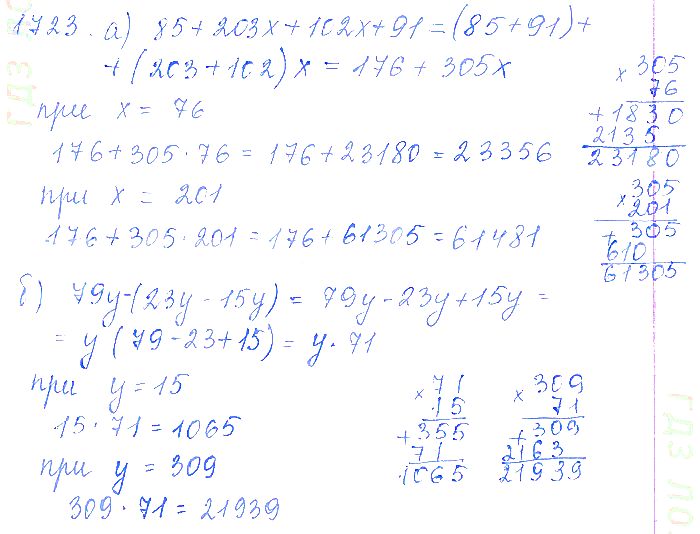 1723. а) 85+203x+102x+91=(85+91)+
+(203+102)x=176+305x
при x=76
176+305·76=176+23180=23356
при x=201
176+305·201=176+61305=61481
× 305
76
+1830
2135
23180
× 305
201
+305
610
61305
б) 79y-(23y-15y)=79y-23y+15y=
=y(79-23+15)=y·71
при y=15
15·71=1065
при y=309
309·71=21939
× 71
15
+355
71
1065
× 309
71
+309
2163
21939
ГДЗ
ГДЗ по.